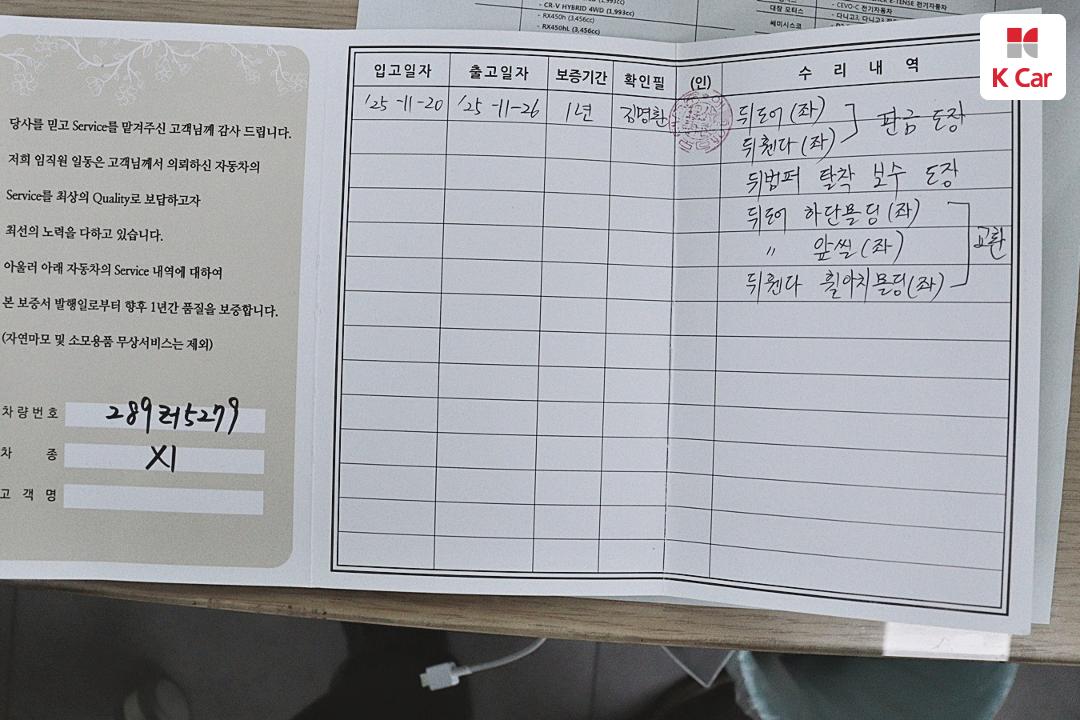 - CR-V HYBRID 4WD (1,993cc)
- RX450h (3,456cc)
- RX450hL (3,456cc)
대창 모터스
쎄미시스코
- CEVO-C 전기자동차
K Car
당사를 믿고 Service를 맡겨주신 고객님께 감사 드립니다.
저희 임직원 일동은 고객님께서 의뢰하신 자동차의
Service를 최상의 Quality로 보답하고자
최선의 노력을 다하고 있습니다.
아울러 아래 자동차의 Service 내역에 대하여
본 보증서 발행일로부터 향후 1년간 품질을 보증합니다.
(자연마모 및 소모용품 무상서비스는 제외)
차량번호 289러5279
차 종 X1
고 객 명
입고일자 출고일자 보증기간 확인필 (인) 수 리 내 역
'25-11-20 '25-11-26 1년 김명환 뒤도어(좌)
뒤휀다(좌) 판금 도장
뒤범퍼 탈착 보수 도장
뒤도어 하단몰딩(좌)
〃 앞씰(좌) 교환
뒤휀다 휠아치몰딩(좌)